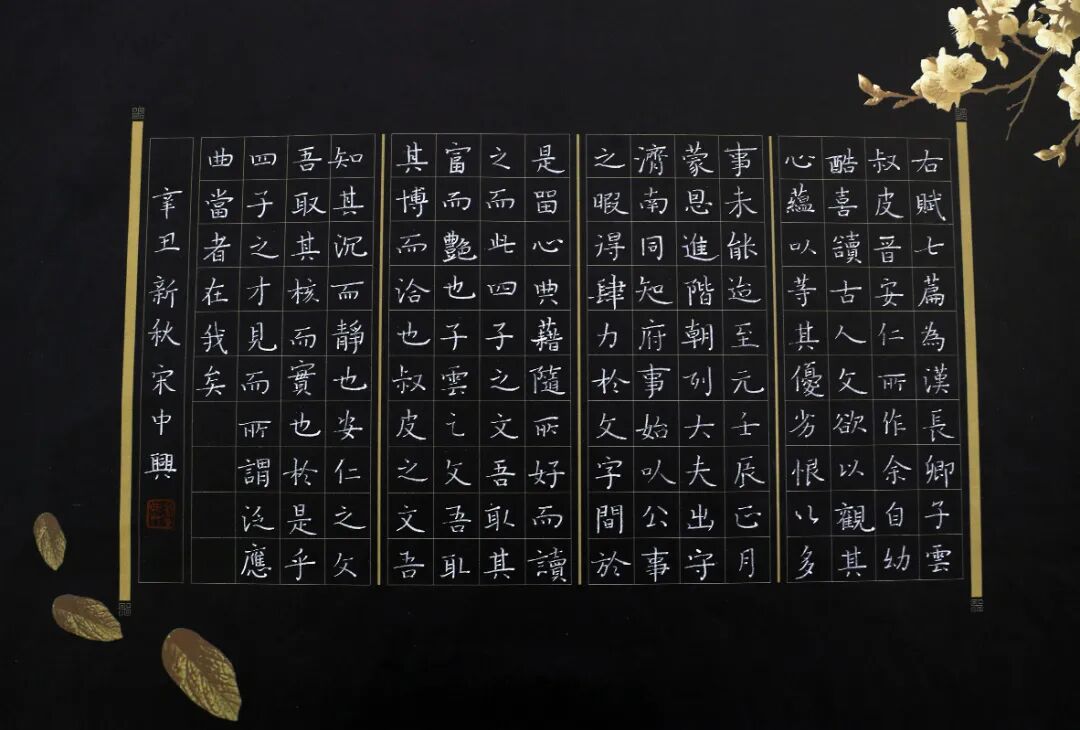 右賦七篇為漢長卿子雲
叔皮晉安仁所作余自幼
酷喜讀古人文欲以觀其
心蘊以等其優劣恨以多
事未能迨至元壬辰正月
蒙恩進階朝列大夫出守
濟南同知府事始以公事
之暇得肆力於文字間於
是留心典藉隨所好而讀
之而此四子之文吾取其
富而艷也子雲之文吾取
其博而洽也叔皮之文吾
知其沉而靜也安仁之文
吾取其核而實也於是乎
四子之才見而所謂泛應
曲當者在我矣
辛丑新秋宋中興